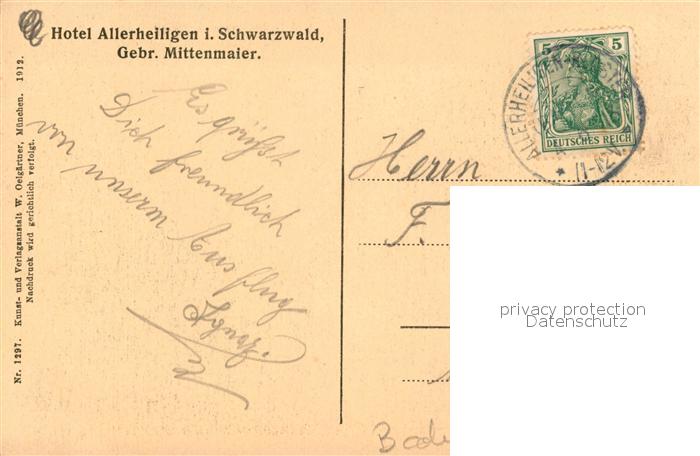 Hotel Allerheiligen i. Schwarzwald,
Gebr. Mittenmaier.
Es grüßt
Dich freundlich
von unserm Ausflug
Ignaz.
Nr. 1297. Kunst- und Verlagsanstalt W. Oelgärtner, München. 1912.
Nachdruck wird gerichtlich verfolgt.
5 5
DEUTSCHES REICH
ALLERHEILIGEN
* 11-12V.
Herrn
F.
privacy protection
Datenschutz